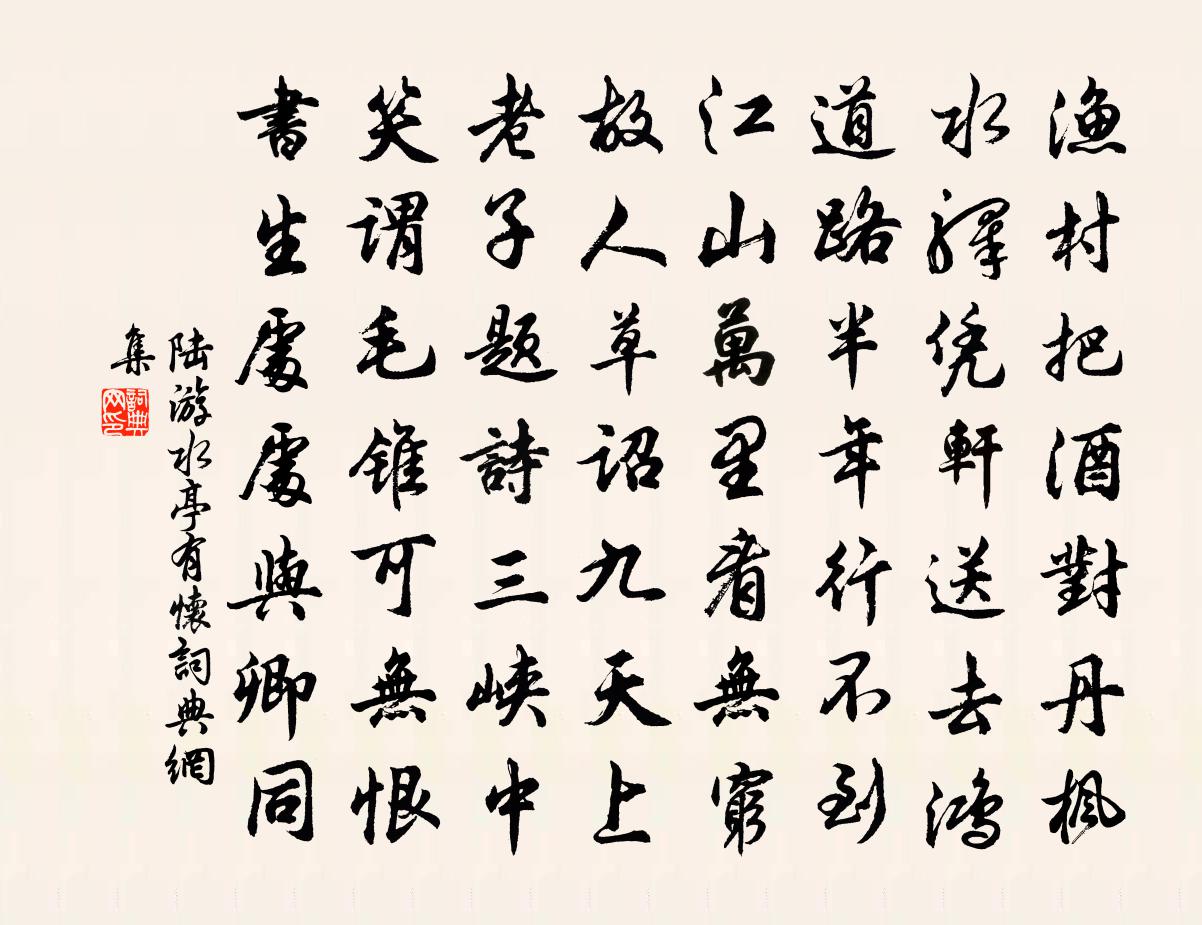 漁村把酒對丹楓
水驛凭軒送去鴻
道路半年行不到
江山萬里看無窮
故人草詔九天上
老子題詩三峽中
笑謂毛錐可無恨
書生處處與卿同
陆游水亭有懷詞典網
集
詞典
网印